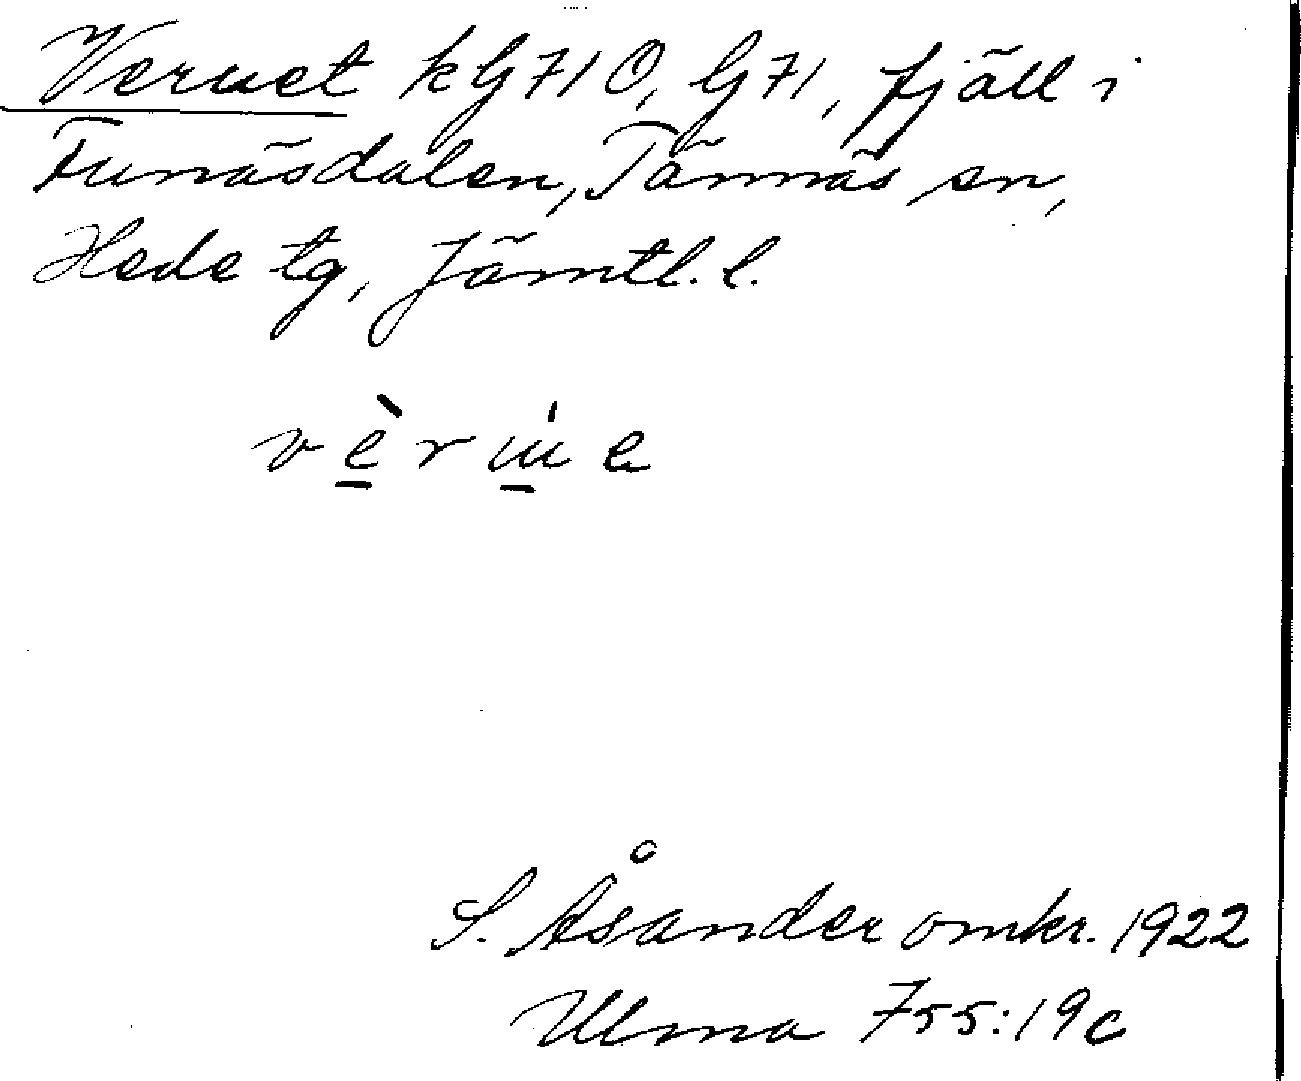 Veruet kG710, G71, fjäll i
Funäsdalen, Tännäs sn,
Hede tg, Jämtl. l.
S. Åsander omkr. 1922
Ulma 755:19c